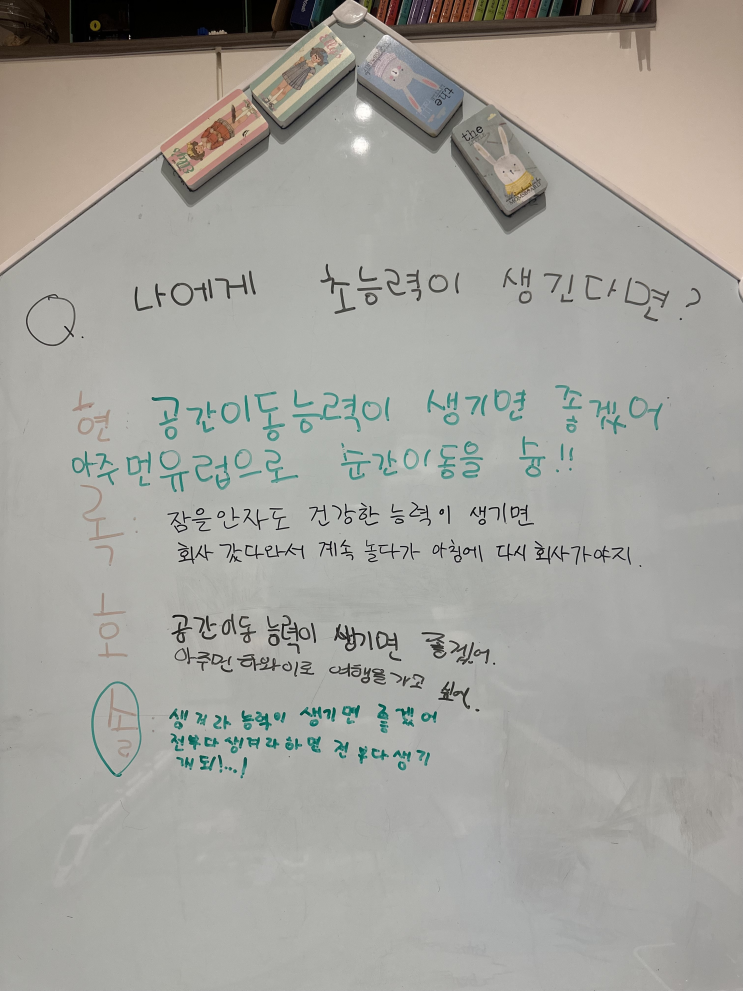 the
the
Q. 나에게 초능력이 생긴다면?
현 공간이동능력이 생기면 좋겠어
아주먼유럽으로 순간이동을 슝!!
록: 잠을안자도 건강한 능력이 생기면
회사 갔다와서 계속 놀다가 아침에 다시 회사가야지.
호 공간이동 능력이 생기면 좋겠어.
아주먼 하와이로 여행을가고 싶어.
생겨라 능력이 생기면 좋겠어
전부다생겨라하면 전부다생기
개되!...!